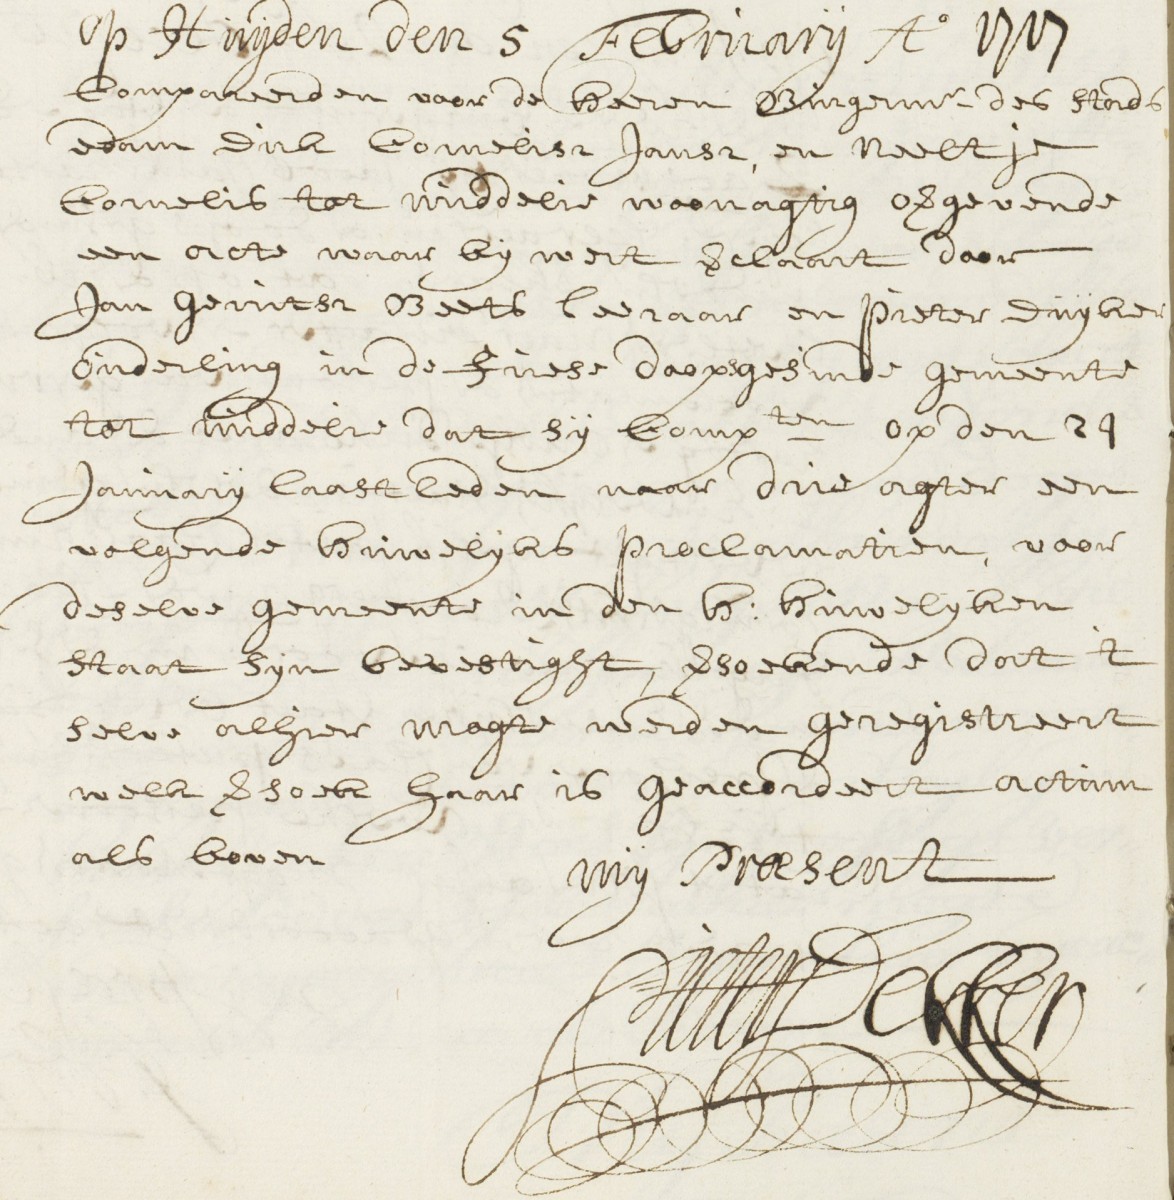 op Huijden den 5 Februarij Ao 1717
Compareerden voor de heeren Burgermrn des stads
edam Dirk Cornelisz Jansz, en Neeltje
Cornelis tot middelie woonagtig overgevende
een acte waar by wert verclaart door
Jan Gerritsz Beets leeraar en Pieter Duijker
ouderling in de Friese doopsgesinde gemeente
tot middelie dat sij Compten op den 24
January laastleden naar drie agter een
volgende huwelijks Proclamatien, voor
deselve gemeente in den h: huwelijken
staat syn bevestight, versoekende dat 't
selve alhier magte werden geregistreert
welk versoek haar is geaccordeert actum
als boven
mij Præsent
Pieter Dekker